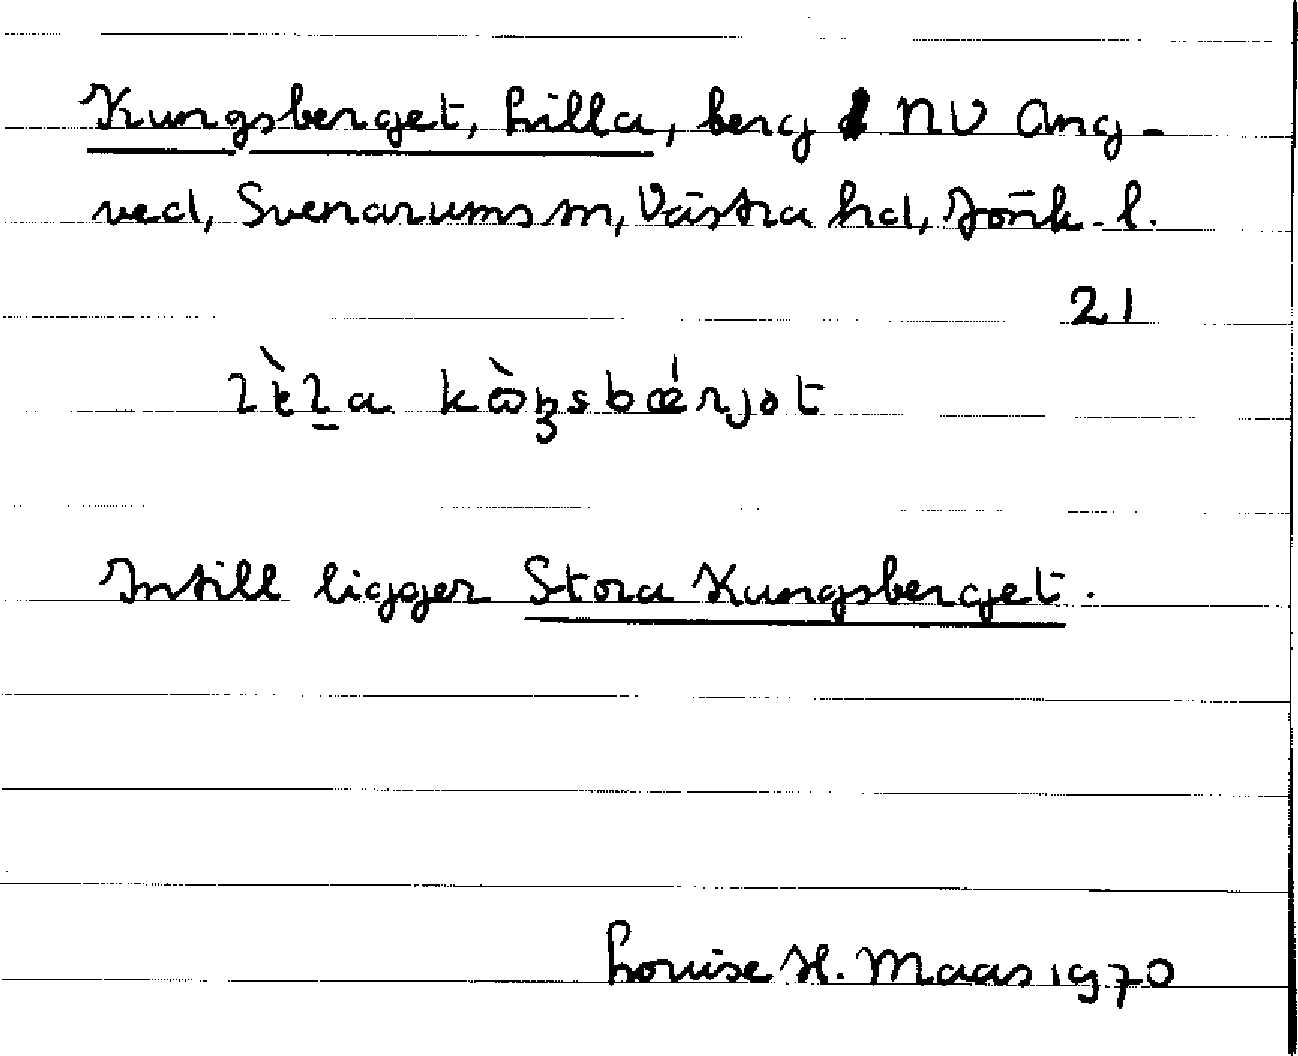 Kungsberget, Lilla, berg NV Ang-
ved, Svenarums sn, Västra hd, Jönk. l.
21
lìl̠a kɷ̀ŋsbǽrjət
Intill ligger Stora Kungsberget.
Louise H. Maas 1970